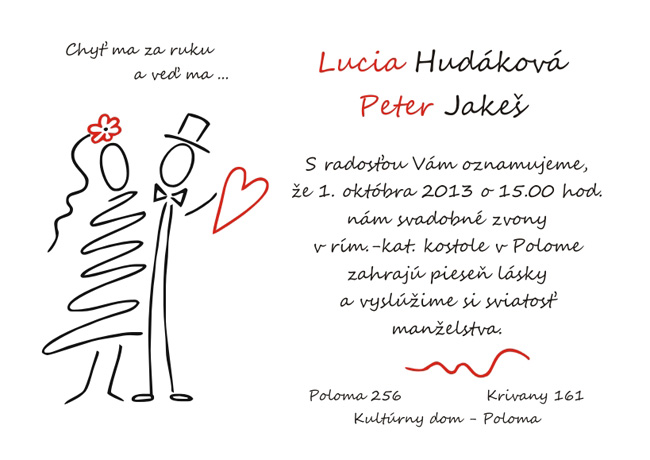 Chyť ma za ruku
a veď ma ...
Lucia Hudáková
Peter Jakeš
S radosťou Vám oznamujeme,
že 1. októbra 2013 o 15.00 hod.
nám svadobné zvony
v rím.-kat. kostole v Polome
zahrajú pieseň lásky
a vyslúžime si sviatosť
manželstva.
Poloma 256 Krivany 161
Kultúrny dom - Poloma